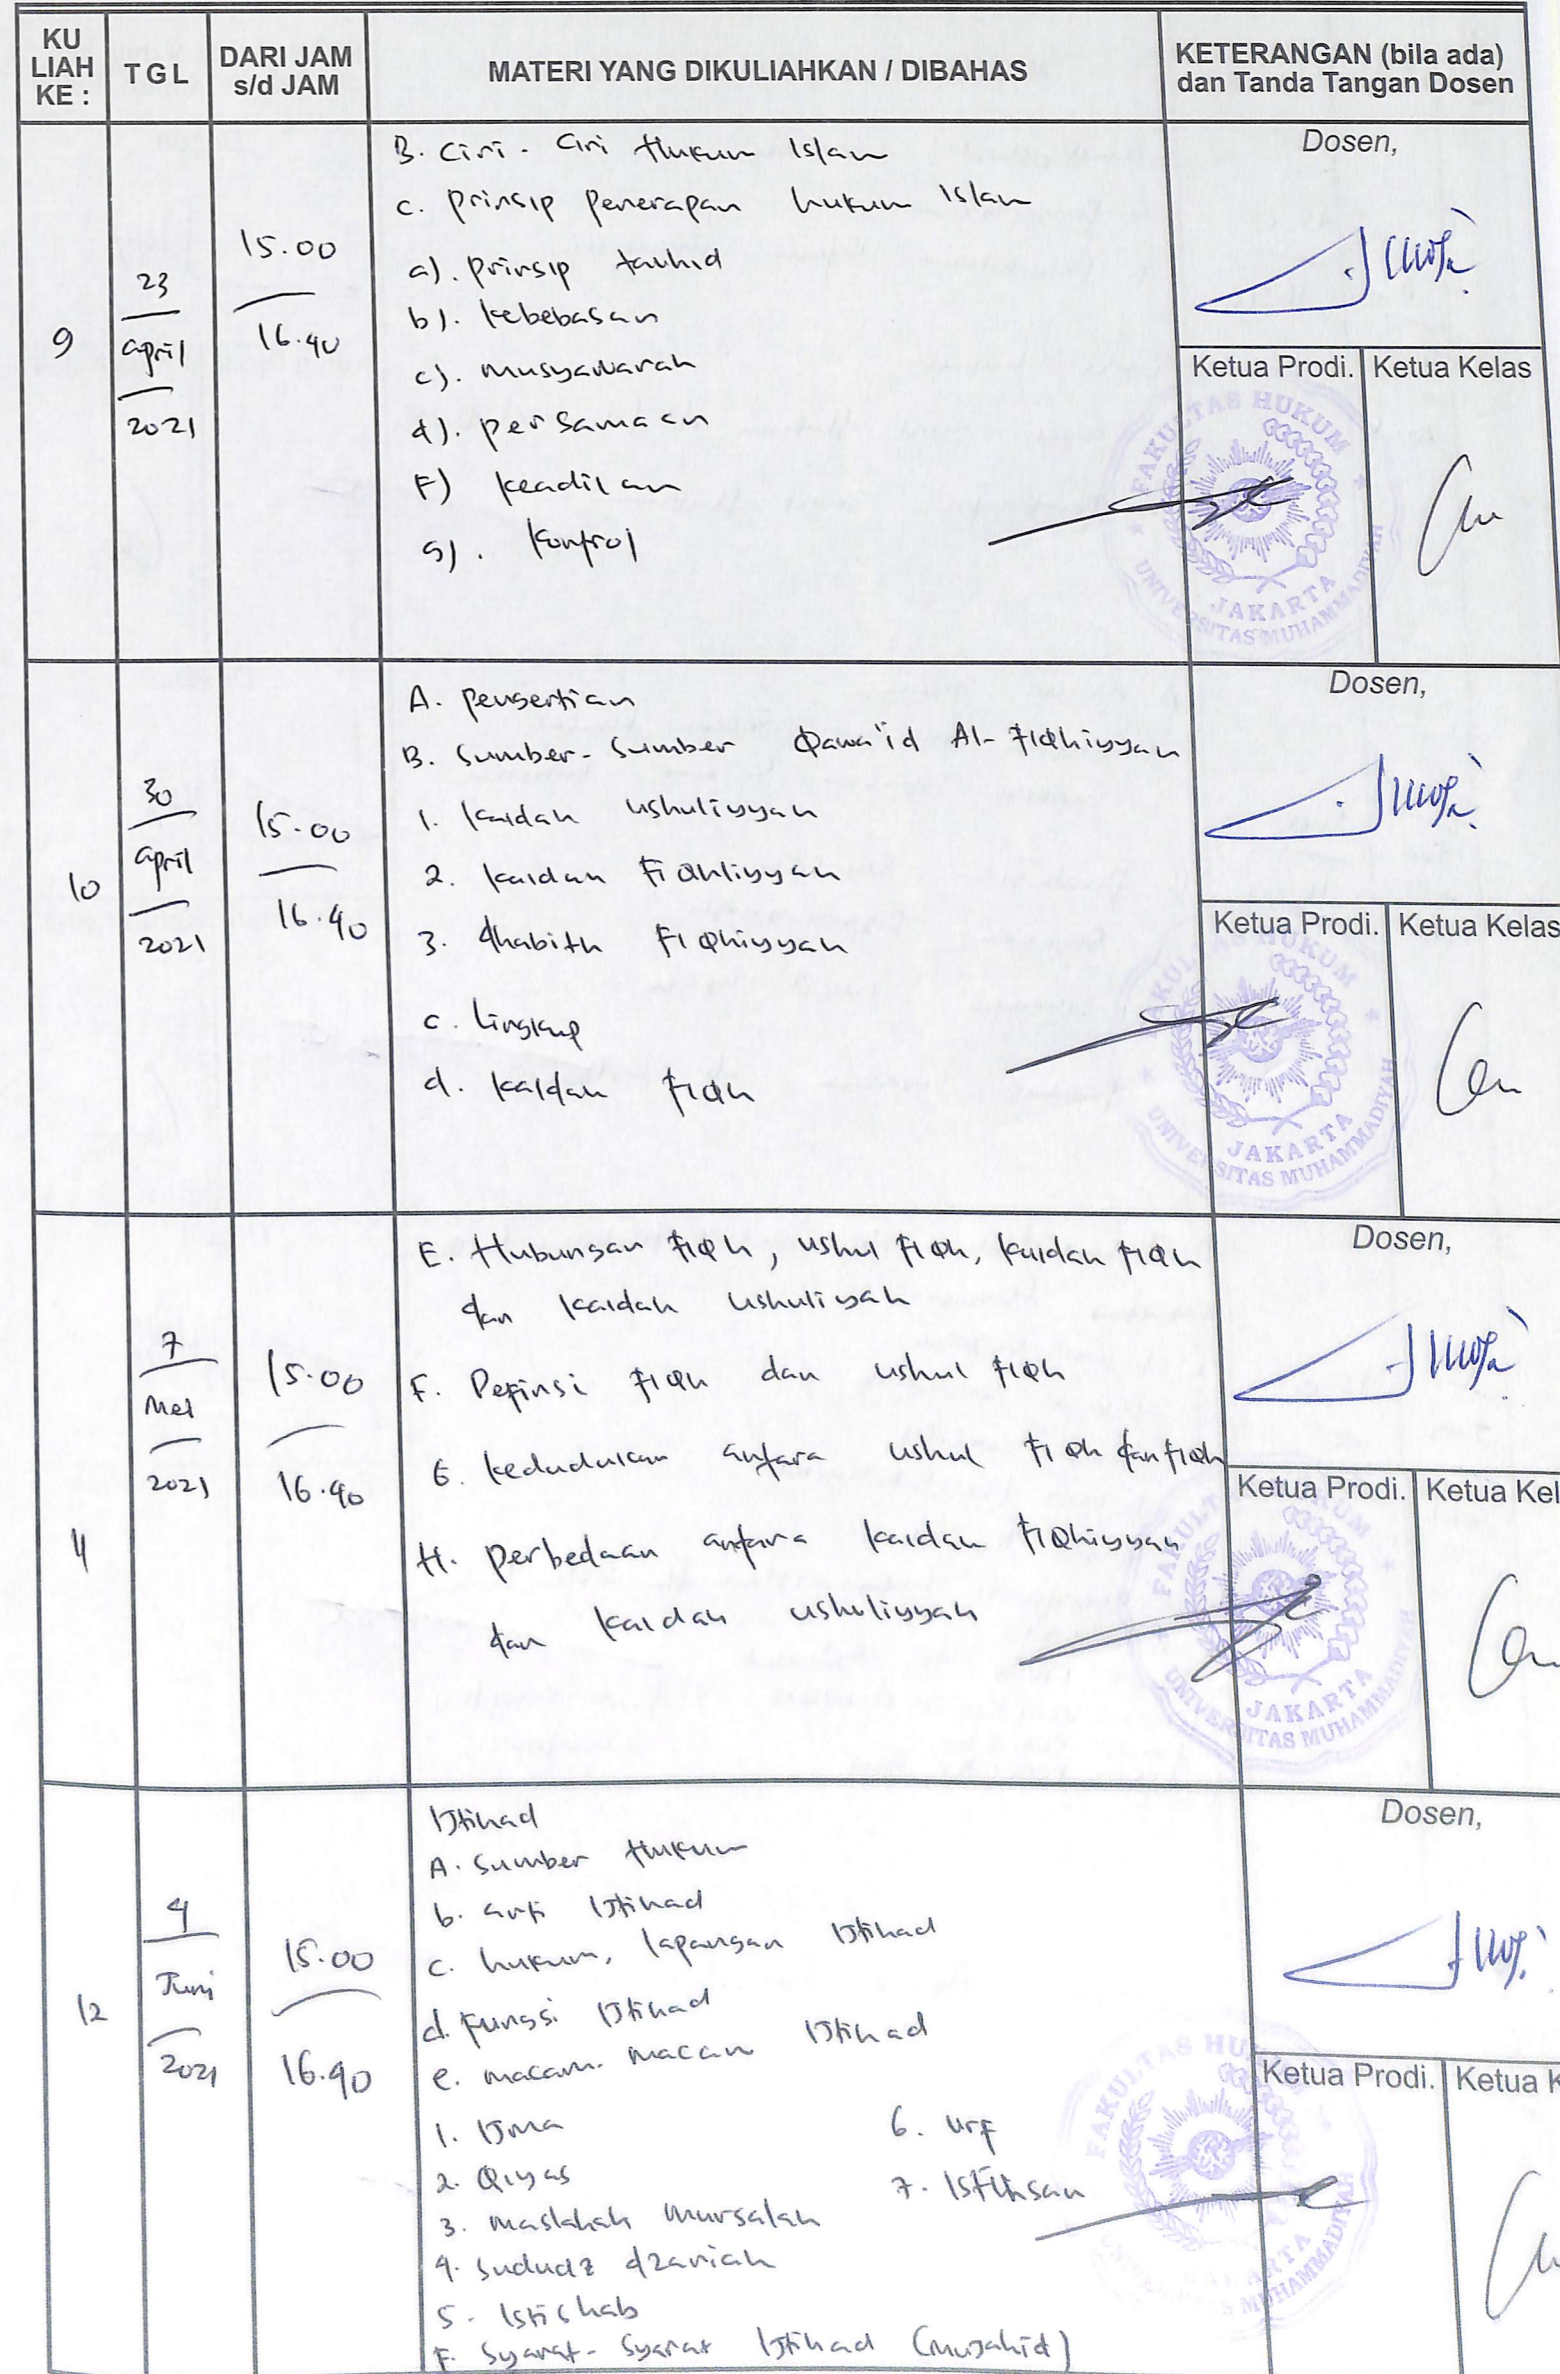 KU
LIAH
KE :
TGL
DARI JAM
s/d JAM
MATERI YANG DIKULIAHKAN / DIBAHAS
KETERANGAN (bila ada)
dan Tanda Tangan Dosen
9
23
april
2021
15.00
16.40
B. Ciri - Ciri Hukum Islam
C. prinsip penerapan hukum Islam
a). prinsip tauhid
b). kebebasan
c). musyawarah
d). persamaan
F) keadilan
g). kontrol
Dosen,
Ketua Prodi.
Ketua Kelas
FAKULTAS HUKUM
JAKARTA
UNIVERSITAS MUHAMMADIYAH
10
30
april
2021
15.00
16.40
A. pengertian
B. Sumber-Sumber Qawa'id Al-Fiqhiyyah
1. kaidah ushuliyyah
2. kaidah Fiqhliyyah
3. dhabith Fiqhiyyah
c. lingkup
d. kaidah fiqh
Dosen,
Ketua Prodi.
Ketua Kelas
FAKULTAS HUKUM
JAKARTA
UNIVERSITAS MUHAMMADIYAH
11
7
Mei
2021
15.00
16.40
E. Hubungan fiqh, ushul fiqh, kaidah fiqh
dan kaidah ushuliyah
F. Definsi fiqh dan ushul fiqh
G. kedudukan antara ushul fiqh dan fiqh
H. perbedaan antara kaidah fiqhiyyah
dan kaidah ushuliyyah
Dosen,
Ketua Prodi.
Ketua Kel
FAKULTAS HUKUM
JAKARTA
UNIVERSITAS MUHAMMADIYAH
12
4
Juni
2021
15.00
16.40
Ijtihad
A. Sumber Hukum
b. arti Ijtihad
c. hukum, lapangan Ijtihad
d. fungsi Ijtihad
e. macam-macam Ijtihad
1. Ijma
2. Qiyas
3. maslahah mursalah
4. sududz dzariah
5. Istishab
6. urf
7. Istihsan
F. Syarat-Syarat Ijtihad (mujahid)
Dosen,
Ketua Prodi.
Ketua K
FAKULTAS HU
JAKARTA
UNIVERSITAS MUHAMMADIYAH